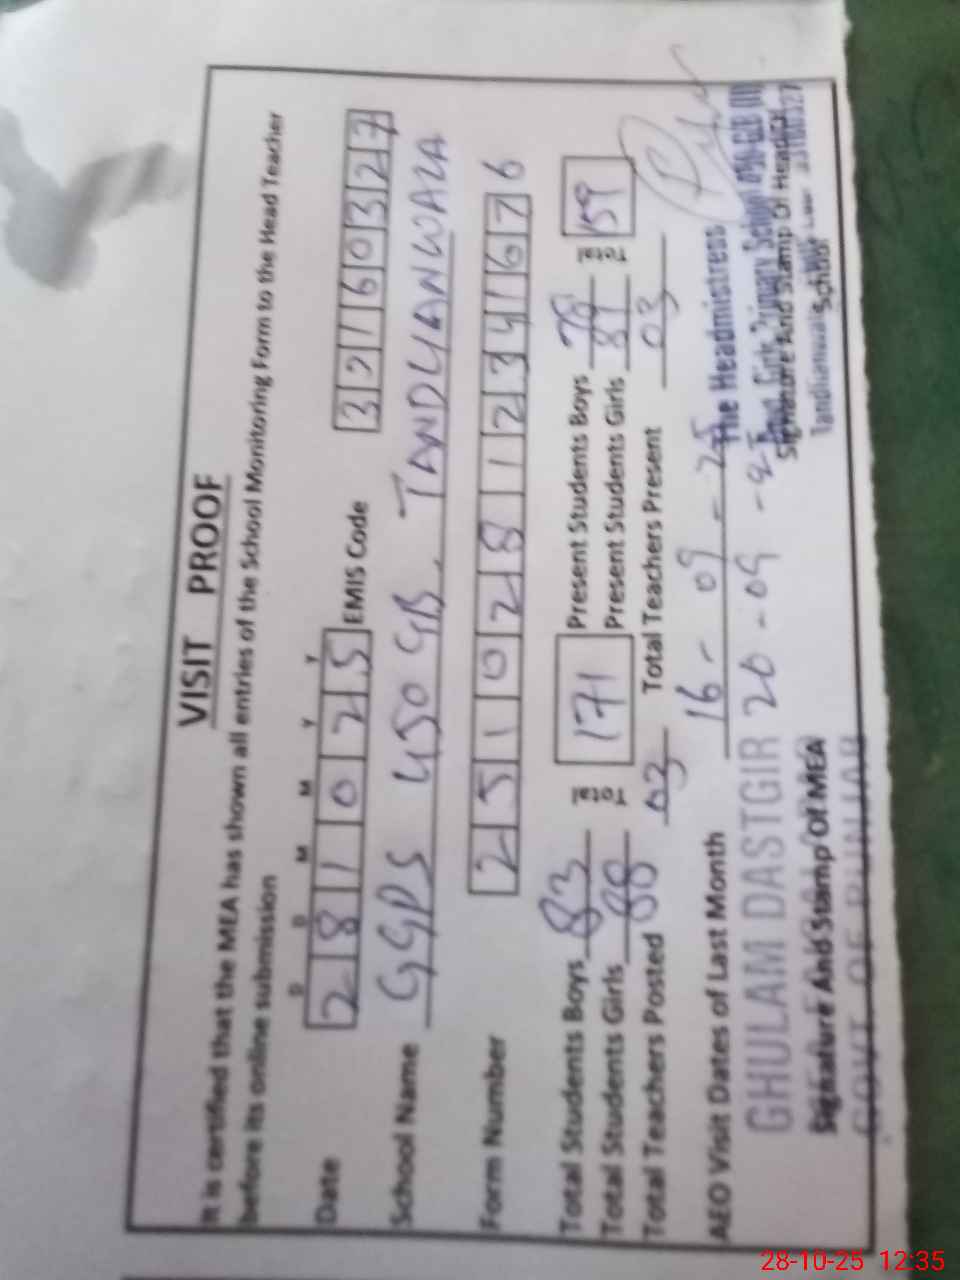 VISIT PROOF
It is certified that the MEA has shown all entries of the School Monitoring Form to the Head Teacher
before its online submission
D D M M Y Y
Date 281025 EMIS Code 32160327
School Name GGPS 450 GB, TANDLYANWALA
Form Number 25102812341676
Total Students Boys 83 Total 171 Present Students Boys 78 Total 159
Total Students Girls 88 Present Students Girls 81
Total Teachers Posted 03 Total Teachers Present 03
AEO Visit Dates of Last Month 16-09-25
20-09-25
GHULAM DASTGIR
Signature And Stamp Of MEA
GOVT OF PUNJAB
The Headmistress
Govt. Girls Primary School 450-GB
Signature And Stamp Of Head Of
School
28-10-25 12:35